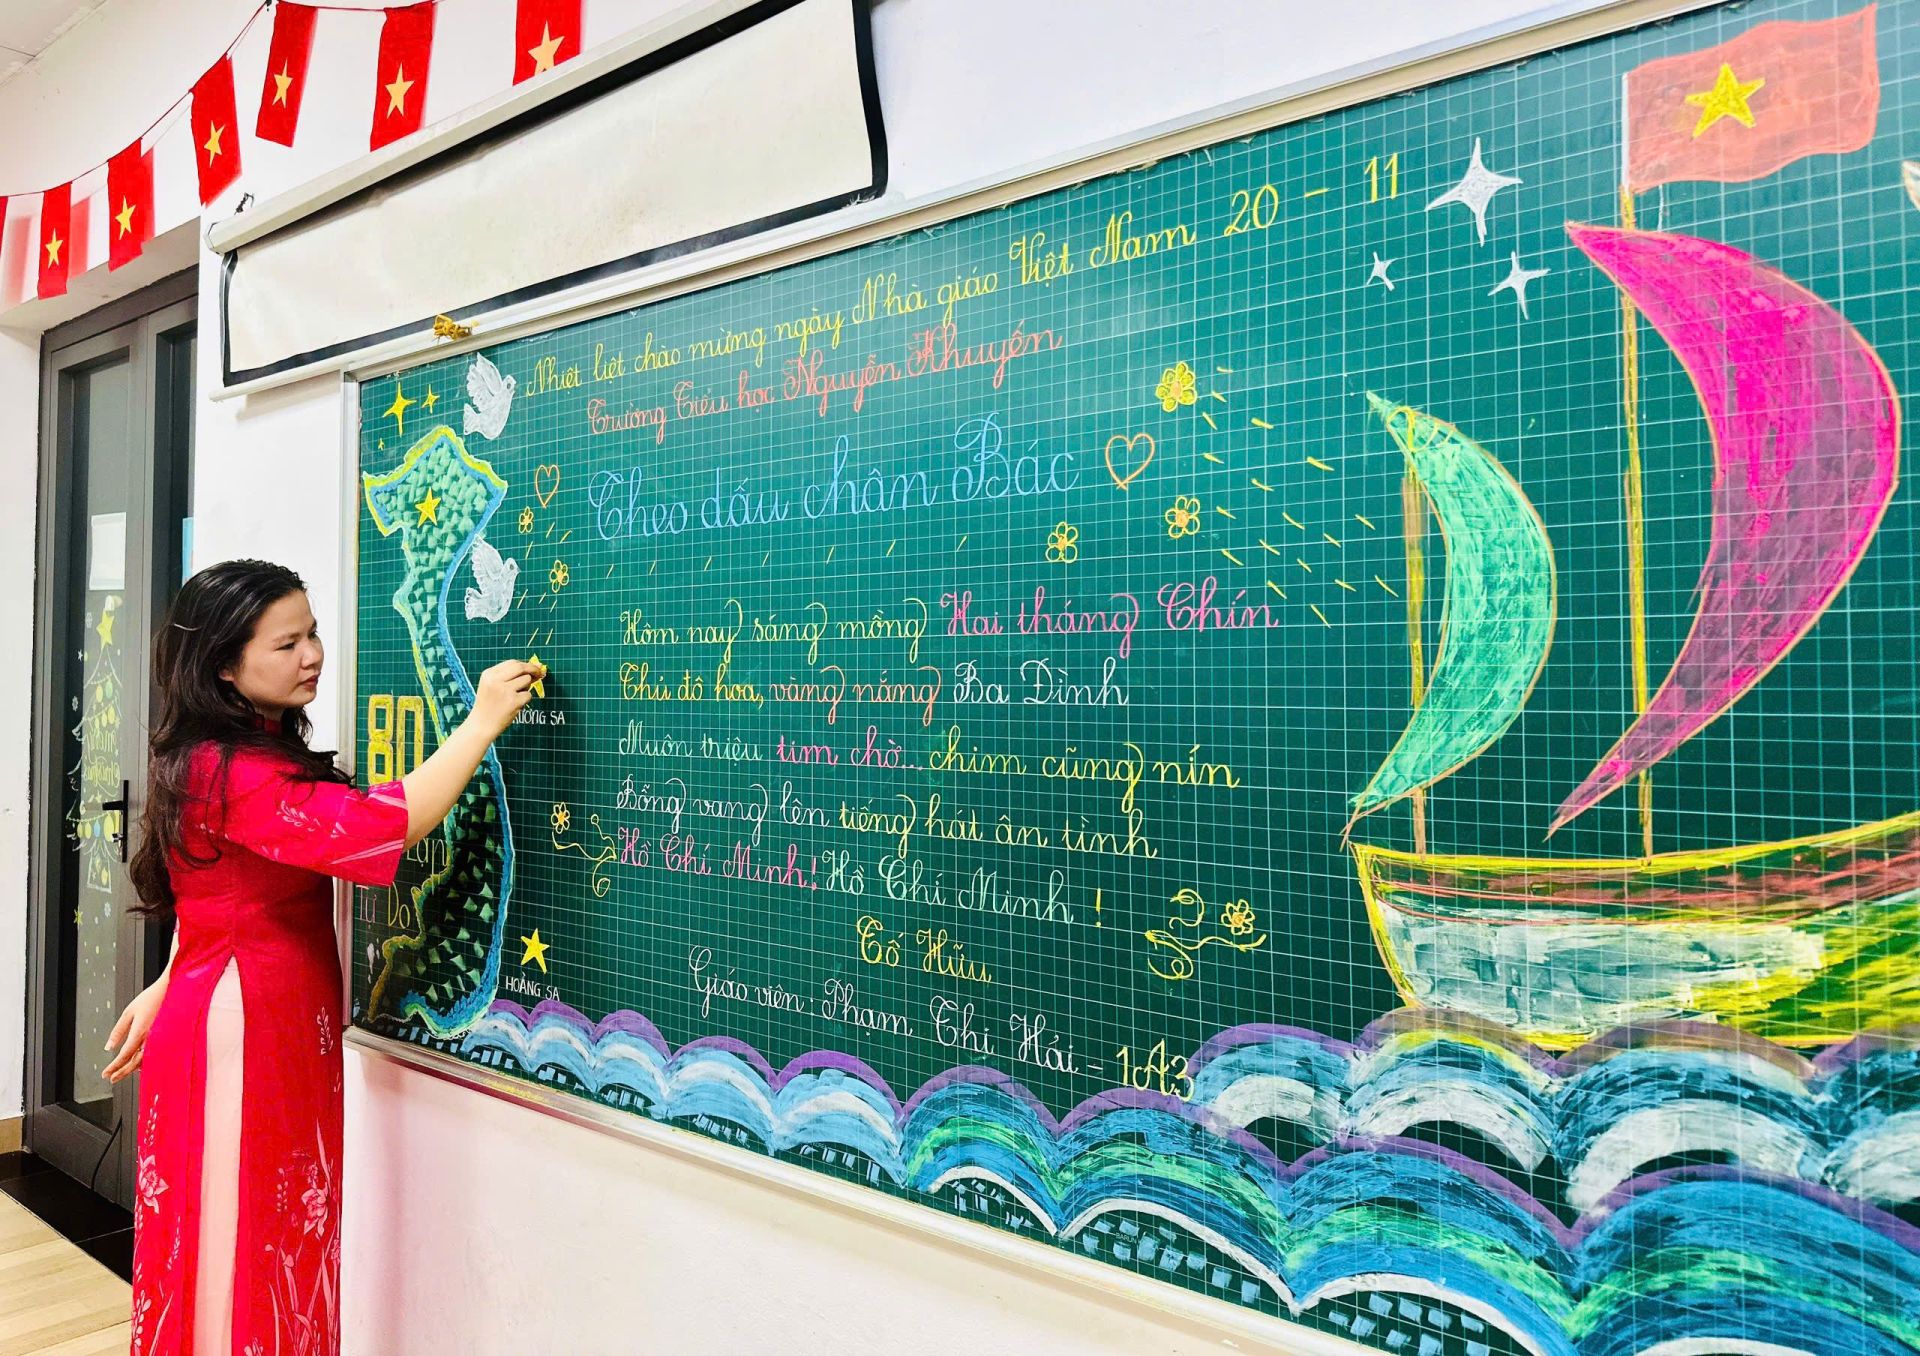 Nhiệt liệt chào mừng ngày Nhà giáo Việt Nam 20 - 11
Trường Tiểu học Nguyễn Khuyến
Theo dấu chân Bác
Hôm nay sáng mồng Hai tháng Chín
Thủ đô hoa, vàng nắng Ba Đình
Muôn triệu tim chờ... chim cũng nín
Bỗng vang lên tiếng hát ân tình
Hồ Chí Minh! Hồ Chí Minh !
Tố Hữu
Giáo viên: Phạm Thị Hải - 1A3
80
Tự Do
SA
HOÀNG SA